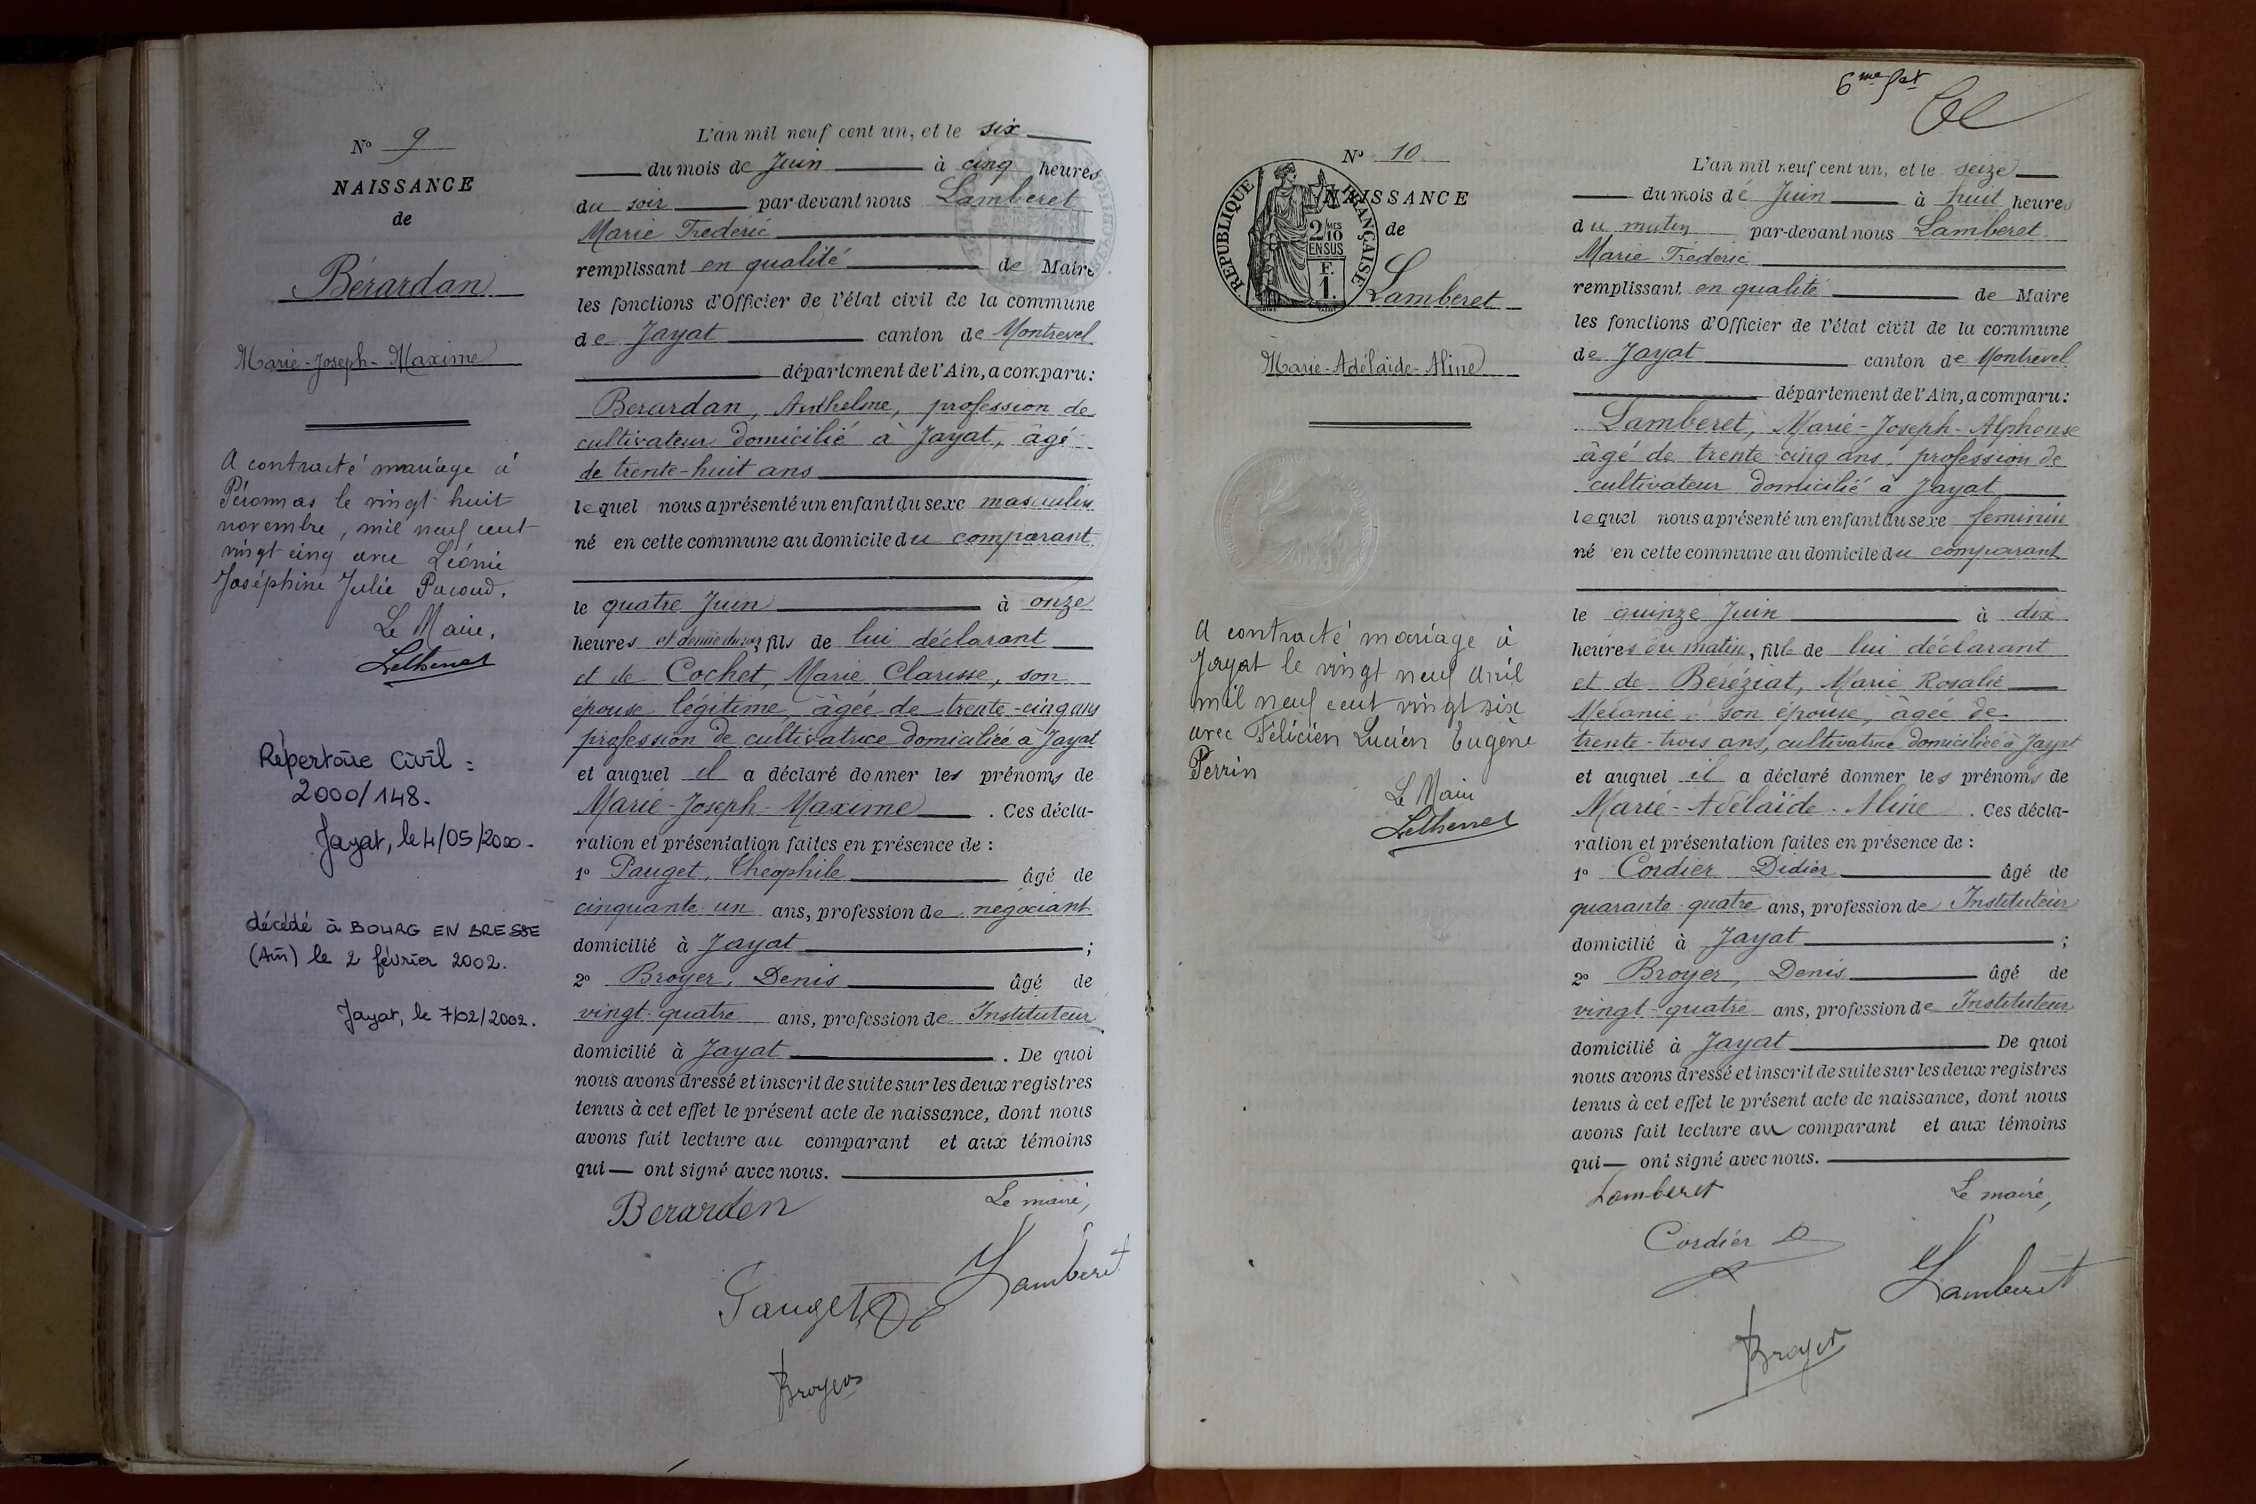 N° 9
NAISSANCE
de
Bérardan
Marie-Joseph-Maxime
A contracté mariage à
Péronnas le vingt huit
novembre, mil neuf cent
vingt cinq avec Léonie
Joséphine Julie Pacoud.
Le Maire,
Lethenet
Répertoire Civil :
2000/148.
Jayat, le 4/05/2000.
décédé à BOURG EN BRESSE
(Ain) le 2 février 2002.
Jayat, le 7/02/2002.
L'an mil neuf cent un, et le six
du mois de Juin à cinq heures
du soir par-devant nous Lamberet
Marie Frédéric
remplissant en qualité de Maire
les fonctions d'Officier de l'état civil de la commune
de Jayat canton de Montrevel
département de l'Ain, a comparu :
Berardan, Anthelme, profession de
cultivateur domicilié à Jayat, âgé
de trente-huit ans
lequel nous a présenté un enfant du sexe masculin
né en cette commune au domicile du comparant
le quatre Juin à onze
heures et demie du soir, fils de lui déclarant
et de Cochet, Marie Clarisse, son
épouse légitime âgée de trente-cinq ans
profession de cultivatrice domiciliée à Jayat
et auquel il a déclaré donner les prénoms de
Marie-Joseph-Maxime. Ces décla-
ration et présentation faites en présence de :
1° Pauget, Théophile âgé de
cinquante un ans, profession de négociant
domicilié à Jayat ;
2° Broyer, Denis âgé de
vingt-quatre ans, profession de Instituteur
domicilié à Jayat. De quoi
nous avons dressé et inscrit de suite sur les deux registres
tenus à cet effet le présent acte de naissance, dont nous
avons fait lecture au comparant et aux témoins
qui ont signé avec nous.
Berardan
Le maire,
Lamberet
Pauget
Broyer
6me f et
N° 10
RÉPUBLIQUE FRANÇAISE
2/10 MES
EN SUS
F.
1.
NAISSANCE
de
Lamberet
Marie-Adélaïde-Aline
A contracté mariage à
Jayat le vingt neuf avril
mil neuf cent vingt six
avec Félicien Lucien Eugène
Perrin
Le Maire
Lethenet
L'an mil neuf cent un, et le seize
du mois de Juin à huit heures
du matin par-devant nous Lamberet
Marie Frédéric
remplissant en qualité de Maire
les fonctions d'Officier de l'état civil de la commune
de Jayat canton de Montrevel
département de l'Ain, a comparu :
Lamberet, Marie-Joseph-Alphonse
âgé de trente cinq ans, profession de
cultivateur domicilié à Jayat
lequel nous a présenté un enfant du sexe féminin
né en cette commune au domicile du comparant
le quinze Juin à dix
heures du matin, fille de lui déclarant
et de Béréziat, Marie Rosalie
Mélanie son épouse, âgée de
trente-trois ans, cultivatrice domiciliée à Jayat
et auquel il a déclaré donner les prénoms de
Marie-Adélaïde-Aline. Ces décla-
ration et présentation faites en présence de :
1° Cordier Didier âgé de
quarante-quatre ans, profession de Instituteur
domicilié à Jayat ;
2° Broyer, Denis âgé de
vingt-quatre ans, profession de Instituteur
domicilié à Jayat De quoi
nous avons dressé et inscrit de suite sur les deux registres
tenus à cet effet le présent acte de naissance, dont nous
avons fait lecture au comparant et aux témoins
qui ont signé avec nous.
Lamberet
Le maire,
Cordier D
Lamberet
Broyer